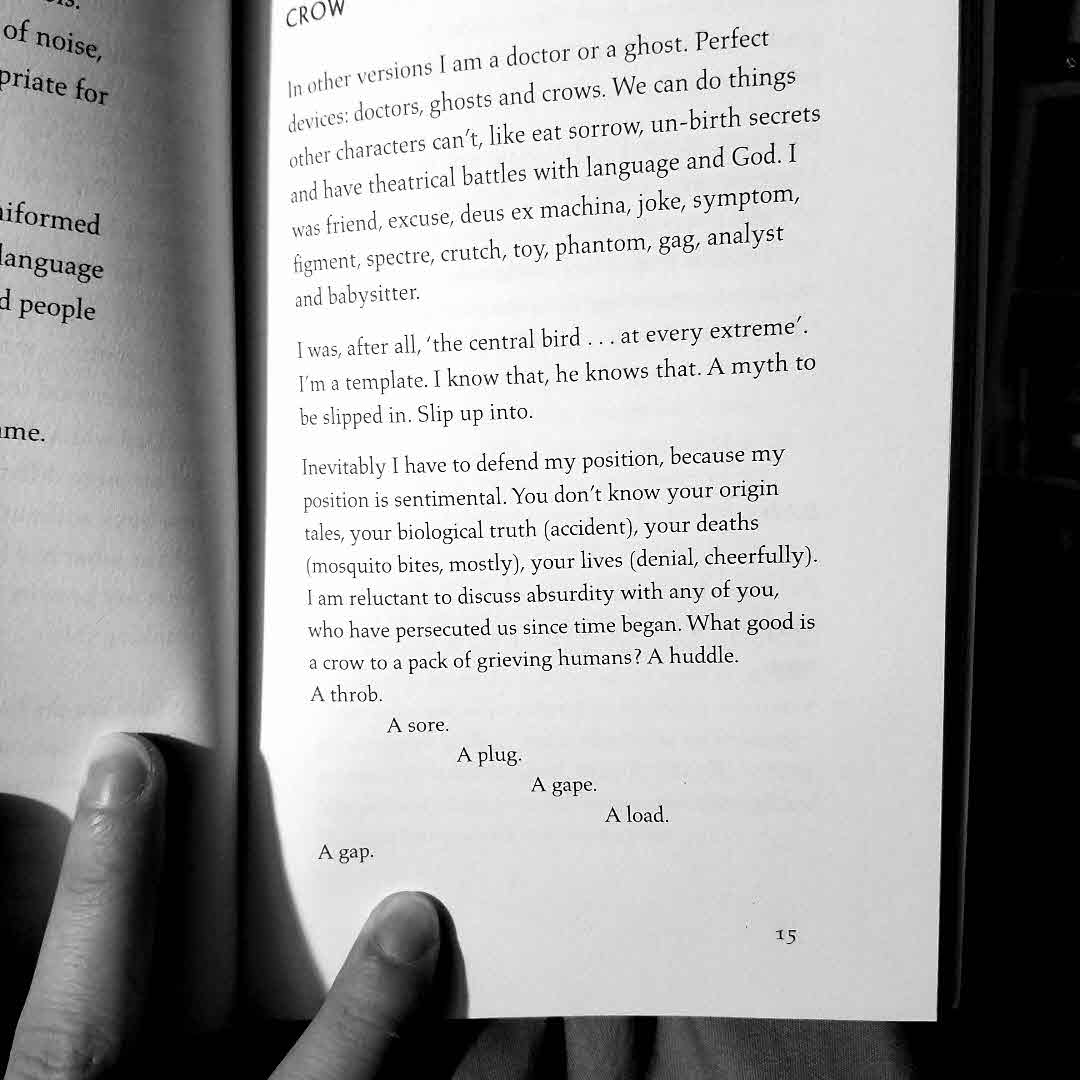 of noise,
priate for
iformed
language
d people
me.
CROW
In other versions I am a doctor or a ghost. Perfect
devices: doctors, ghosts and crows. We can do things
other characters can't, like eat sorrow, un-birth secrets
and have theatrical battles with language and God. I
was friend, excuse, deus ex machina, joke, symptom,
figment, spectre, crutch, toy, phantom, gag, analyst
and babysitter.
I was, after all, ‘the central bird . . . at every extreme’.
I'm a template. I know that, he knows that. A myth to
be slipped in. Slip up into.
Inevitably I have to defend my position, because my
position is sentimental. You don't know your origin
tales, your biological truth (accident), your deaths
(mosquito bites, mostly), your lives (denial, cheerfully).
I am reluctant to discuss absurdity with any of you,
who have persecuted us since time began. What good is
a crow to a pack of grieving humans? A huddle.
A throb.
A sore.
A plug.
A gape.
A load.
A gap.
15